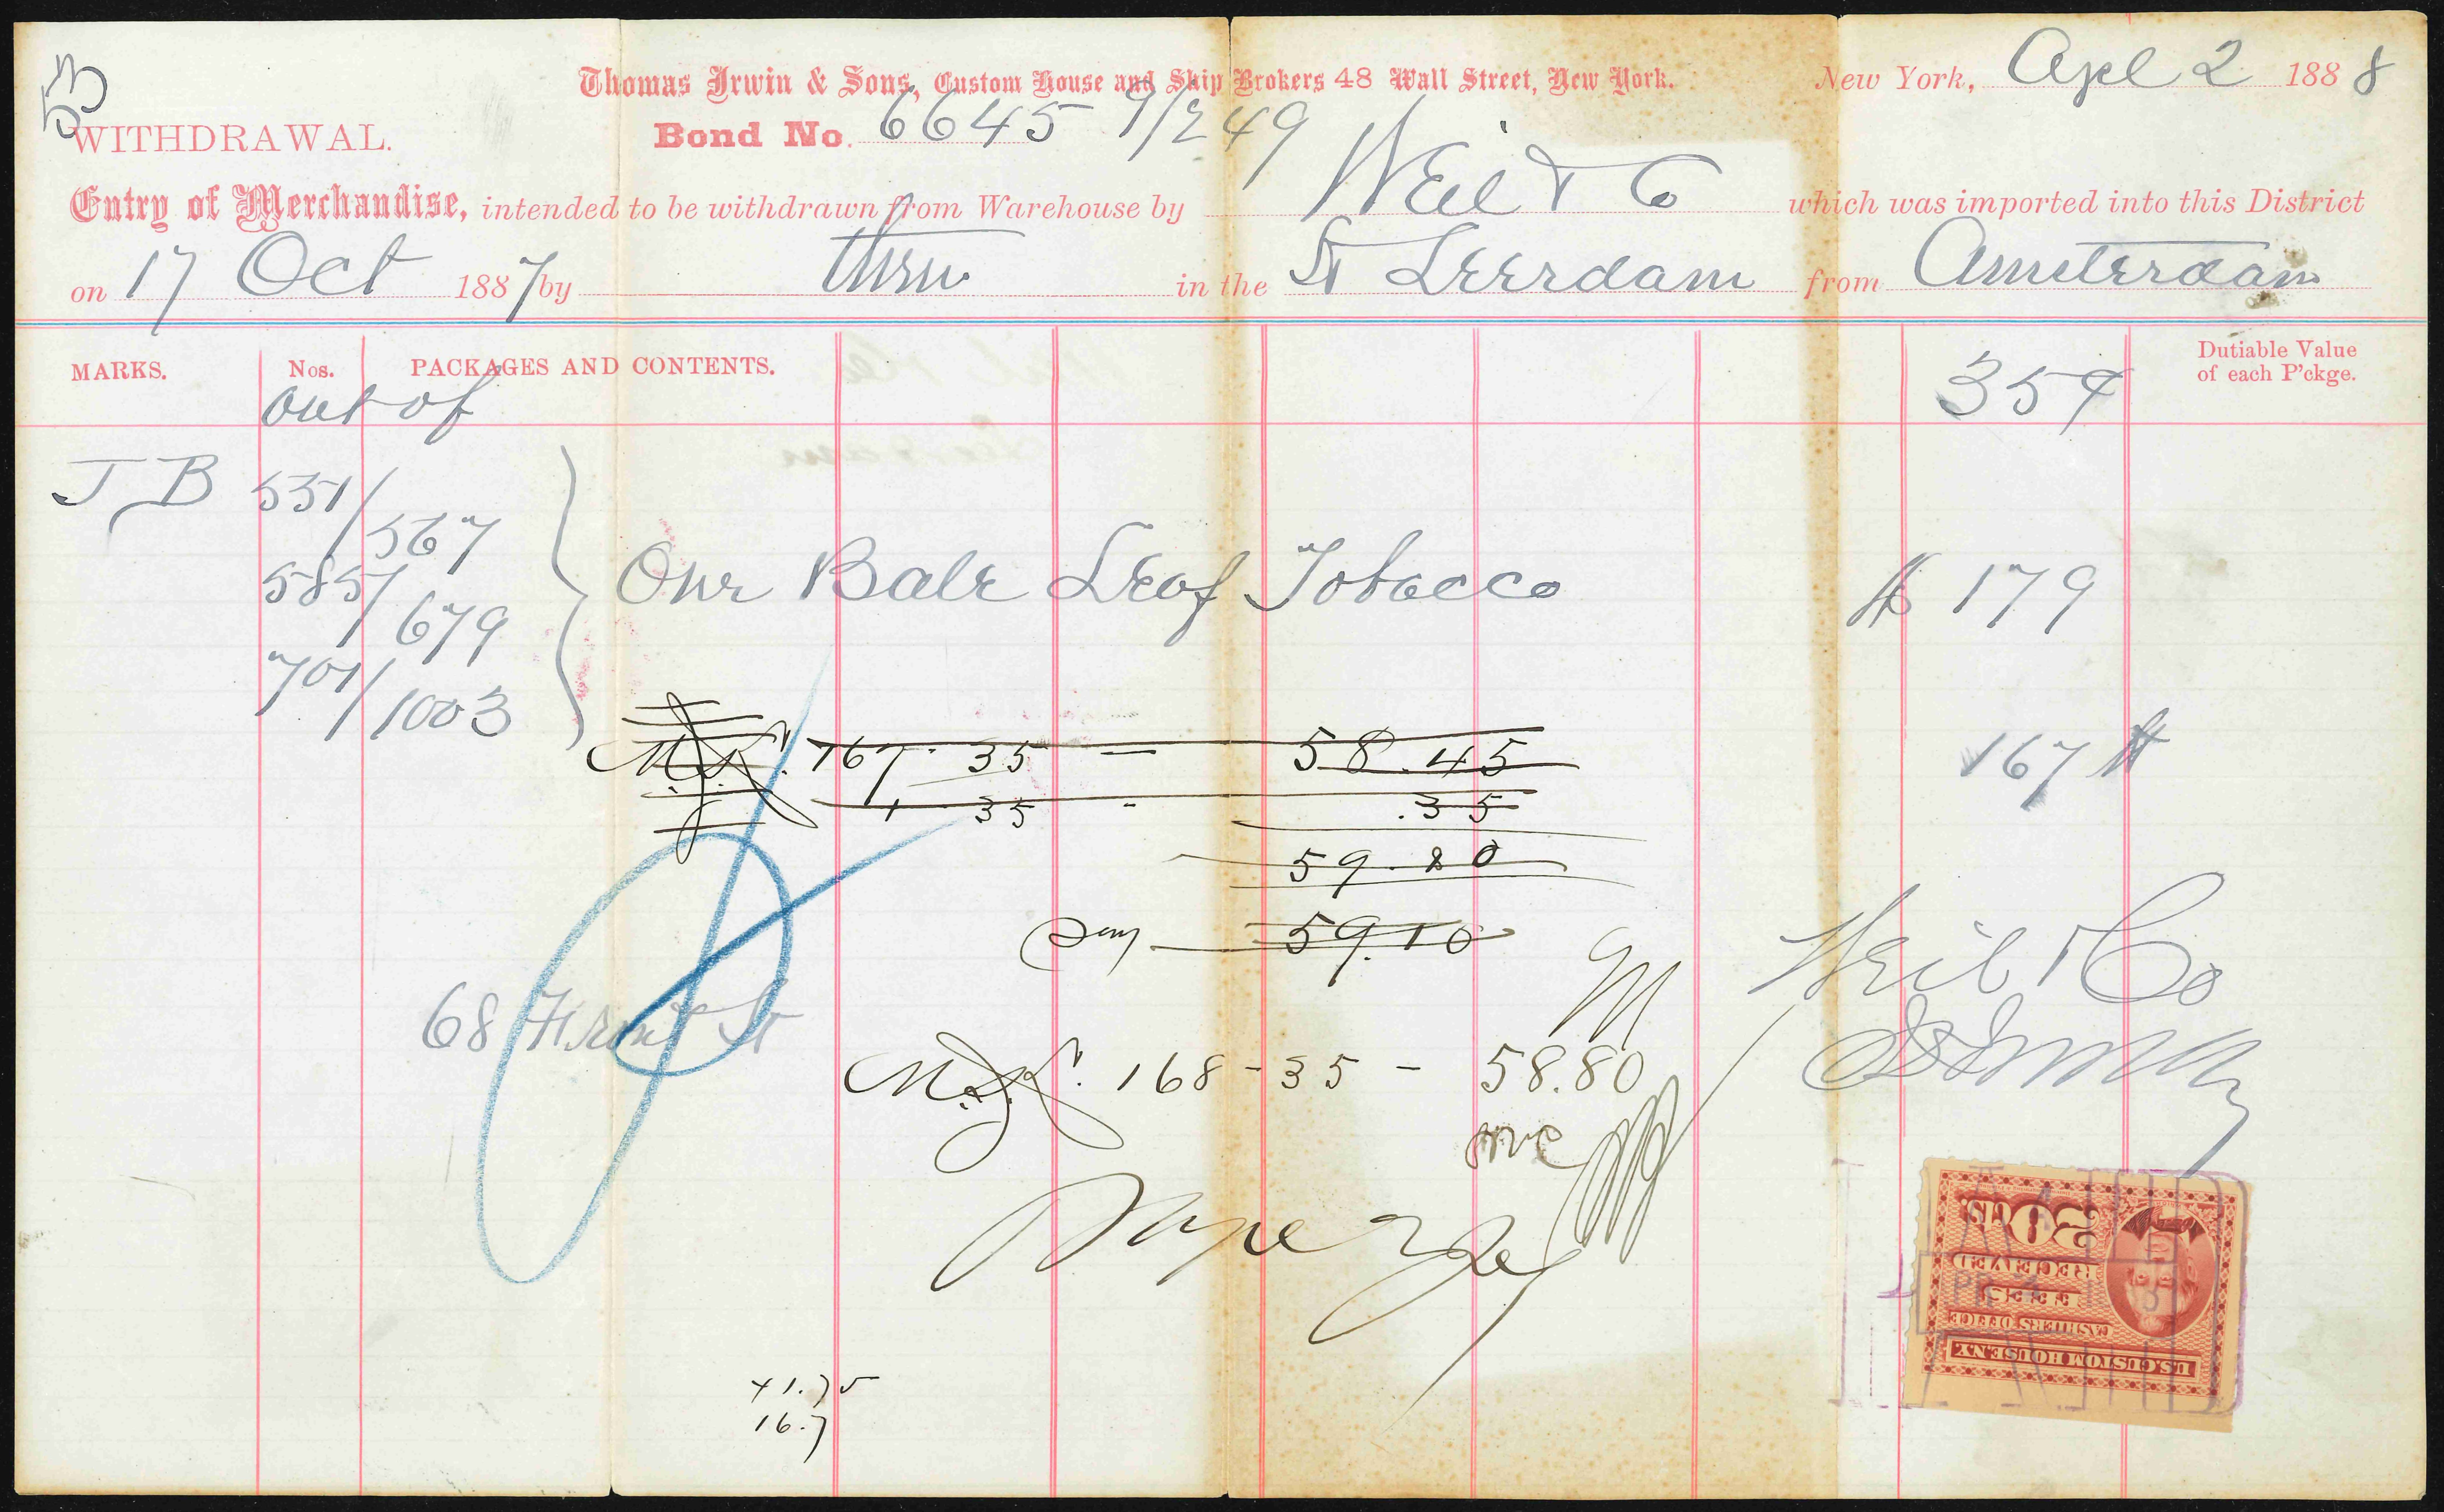 53
Thomas Irwin & Sons, Custom House and Ship Brokers 48 Wall Street, New York.
New York, Apl 2 1888
WITHDRAWAL.
Bond No. 6645 9/249
Entry of Merchandise, intended to be withdrawn from Warehouse by Weil & Co which was imported into this District
on 17 Oct 1887 by them in the St Leerdam from Amsterdam
MARKS. Nos. PACKAGES AND CONTENTS. Dutiable Value of each P'ckge.
out of 35¢
J B 531/567
585/679 One Bale Leaf Tobacco lb 179
701/1003
167 35 — 58.45 167 lb
1 35 - .35
59.80
Say 59.10
Weil & Co
68 Front St
168 - 35 - 58.80
41.75
16.7
20 CTS.
RECEIVED
FEES
CASHIERS OFFICE
U.S. CUSTOM HOUSE N.Y.